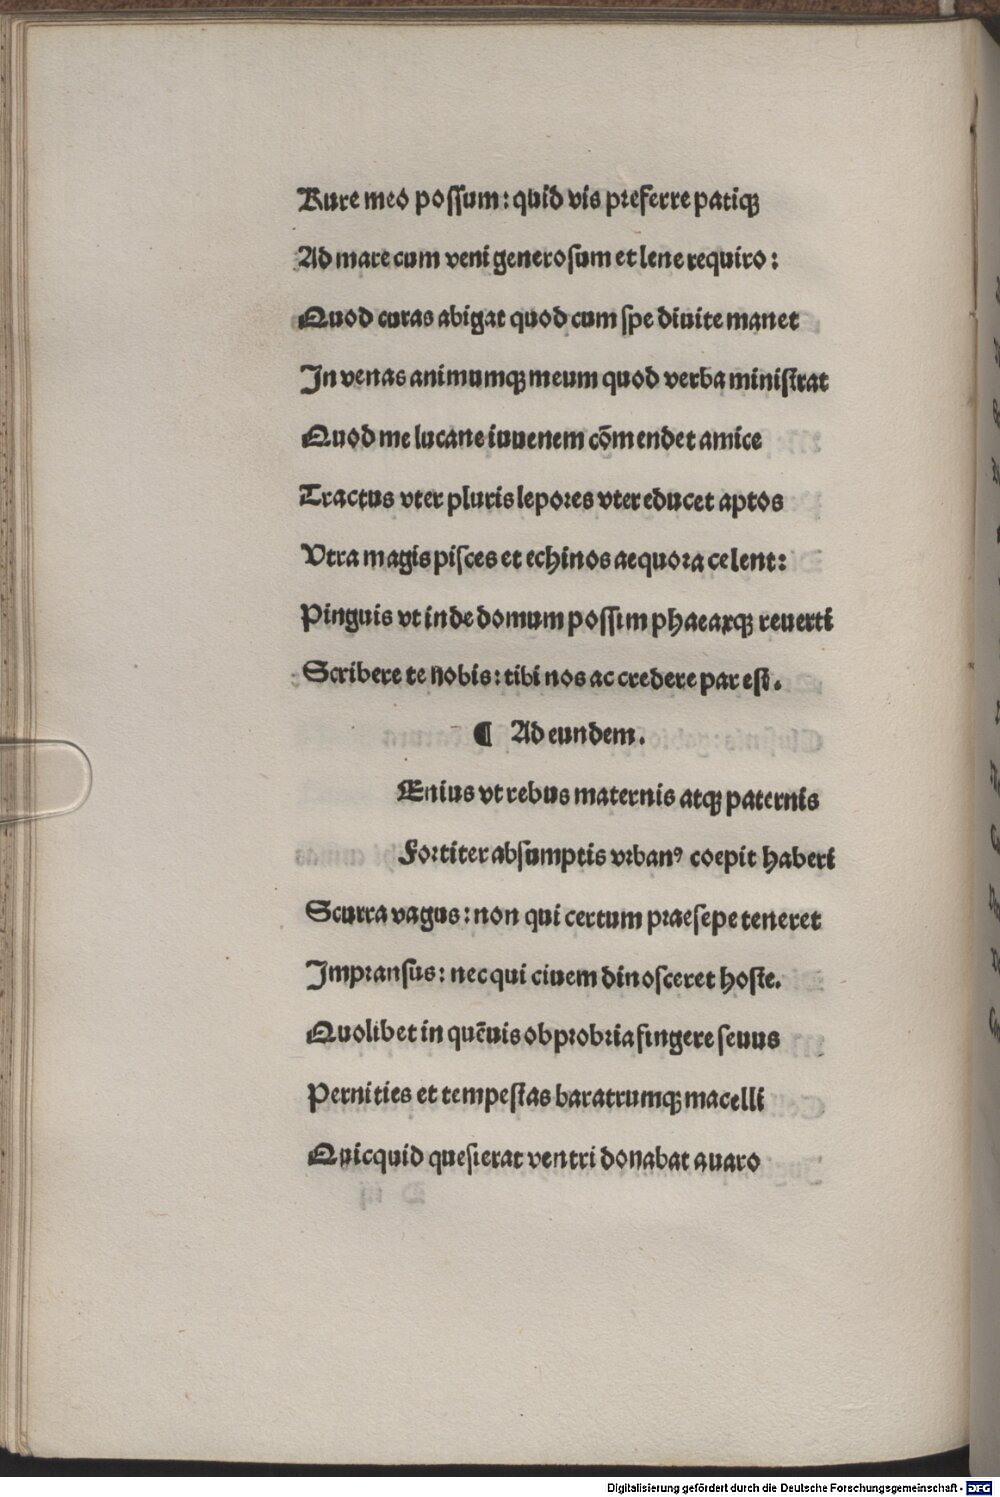 Rure meo poſſum: quid vis preferre patiqꝫ
Ad mare cum veni generoſum et lene requiro:
Quod curas abigat quod cum ſpe diuite manet
In venas animumqꝫ meum quod verba miniſtrat
Quod me lucane iuuenem cōmendet amice
Tractus vter pluris lepores vter educet aptos
Vtra magis piſces et echinos aequora celent:
Pinguis vt inde domum poſſim phaeaxqꝫ reuerti
Scribere te nobis: tibi nos ac credere par eſt.
¶ Ad eundem.
Enius vt rebus maternis atqꝫ paternis
Fortiter abſumptis vrbanꝰ coepit haberi
Scurra vagus: non qui certum praeſepe teneret
Impranſus: nec qui ciuem dinoſceret hoſte.
Quolibet in quēuis obprobria fingere ſeuus
Pernities et tempeſtas baratrumqꝫ macelli
Quicquid queſierat ventri donabat auaro
Digitalisierung gefördert durch die Deutsche Forschungsgemeinschaft - DFG